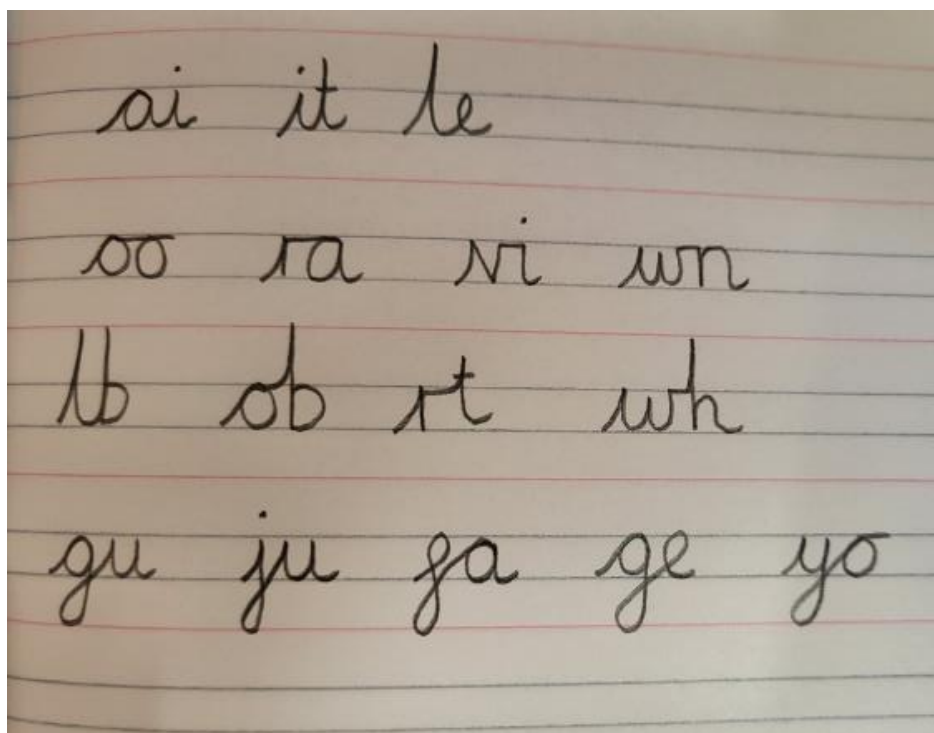 ai it le
oo ra vi wn
lb ob rt wh
gu ju fa ge yo